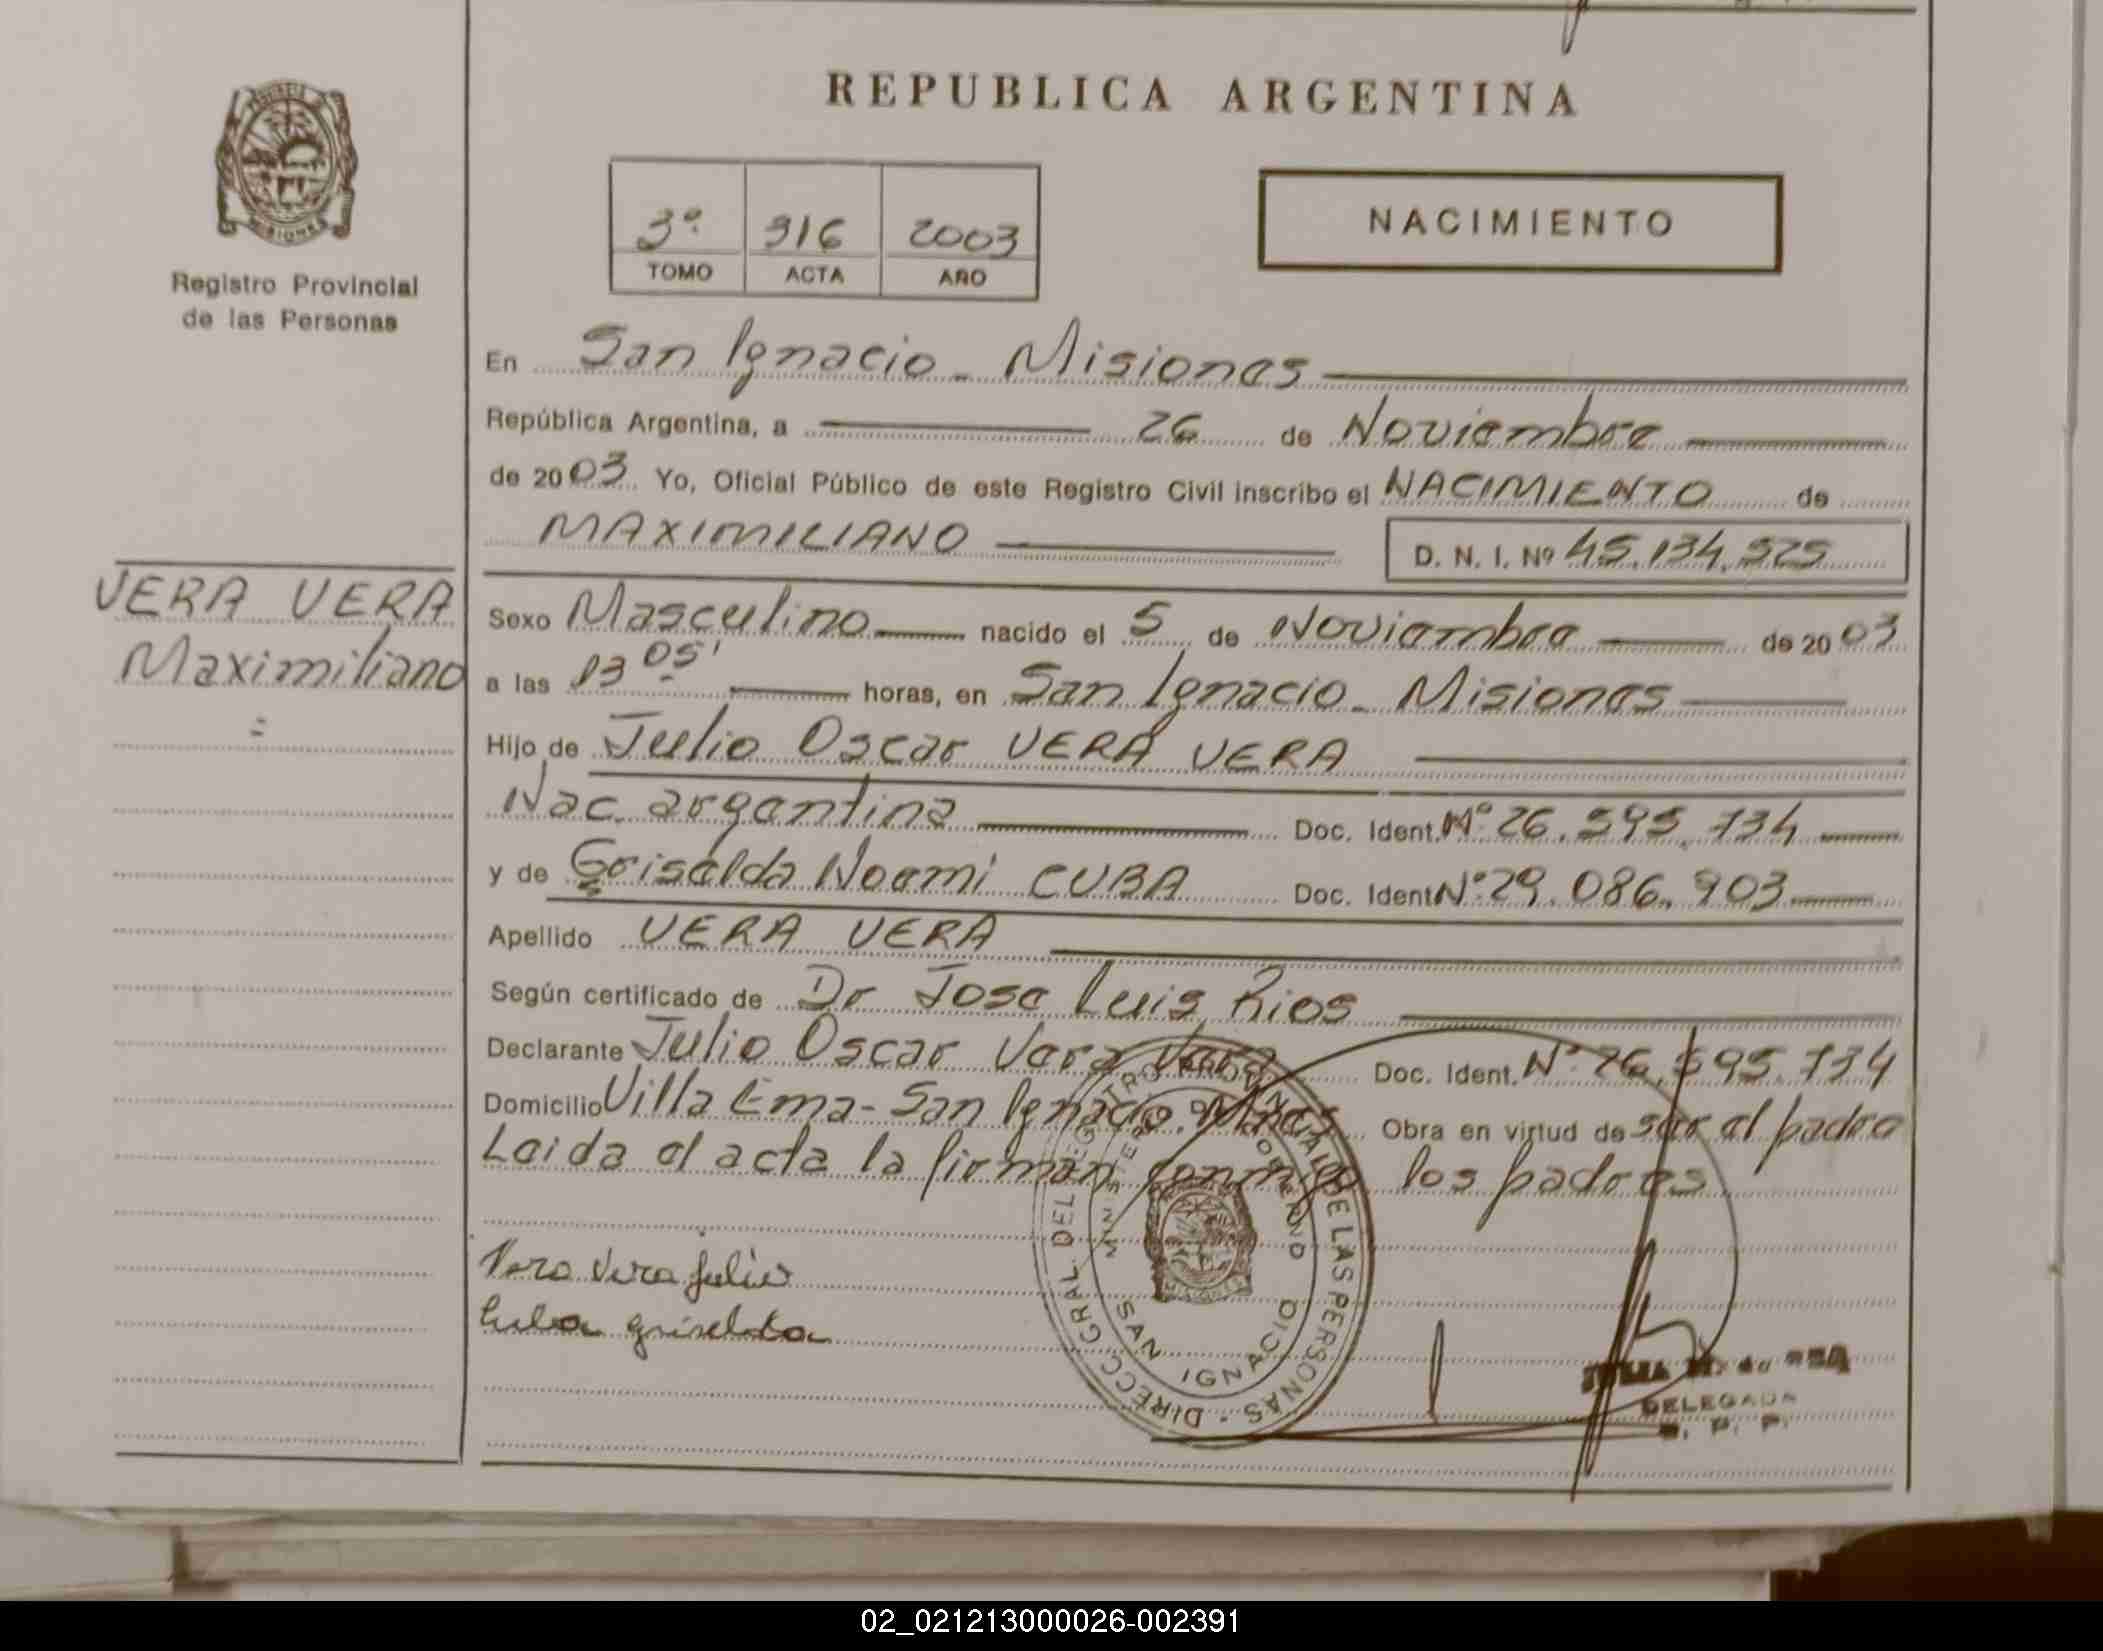 REPUBLICA ARGENTINA
3º 316 2003
TOMO ACTA AÑO
NACIMIENTO
Registro Provincial
de las Personas
En San Ignacio - Misiones
República Argentina, a 26 de Noviembre
de 2003. Yo, Oficial Público de este Registro Civil inscribo el NACIMIENTO de
MAXIMILIANO D. N. I. Nº 45.134.525
VERA VERA
Maximiliano
=
Sexo Masculino nacido el 5 de Noviembre de 2003
a las 13 05' horas, en San Ignacio - Misiones
Hijo de Julio Oscar VERA VERA
Nac. argentina Doc. Ident. Nº 26.595.734
y de Griselda Noemi CUBA Doc. Ident Nº 29.086.903
Apellido VERA VERA
Según certificado de Dr Jose Luis Rios
Declarante Julio Oscar Vera Vera Doc. Ident. Nº 26.595.734
Domicilio Villa Ema - San Ignacio. Mnes Obra en virtud de ser el padre
Leida el acta la firman conmigo los padres
Vera Vera Julio
Cuba Griselda
DIRECC GRAL. DEL REGISTRO PROVINCIAL DE LAS PERSONAS
MINISTERIO DE GOBIERNO
SAN IGNACIO
DELEGADA
R. P. P.
02_021213000026-002391